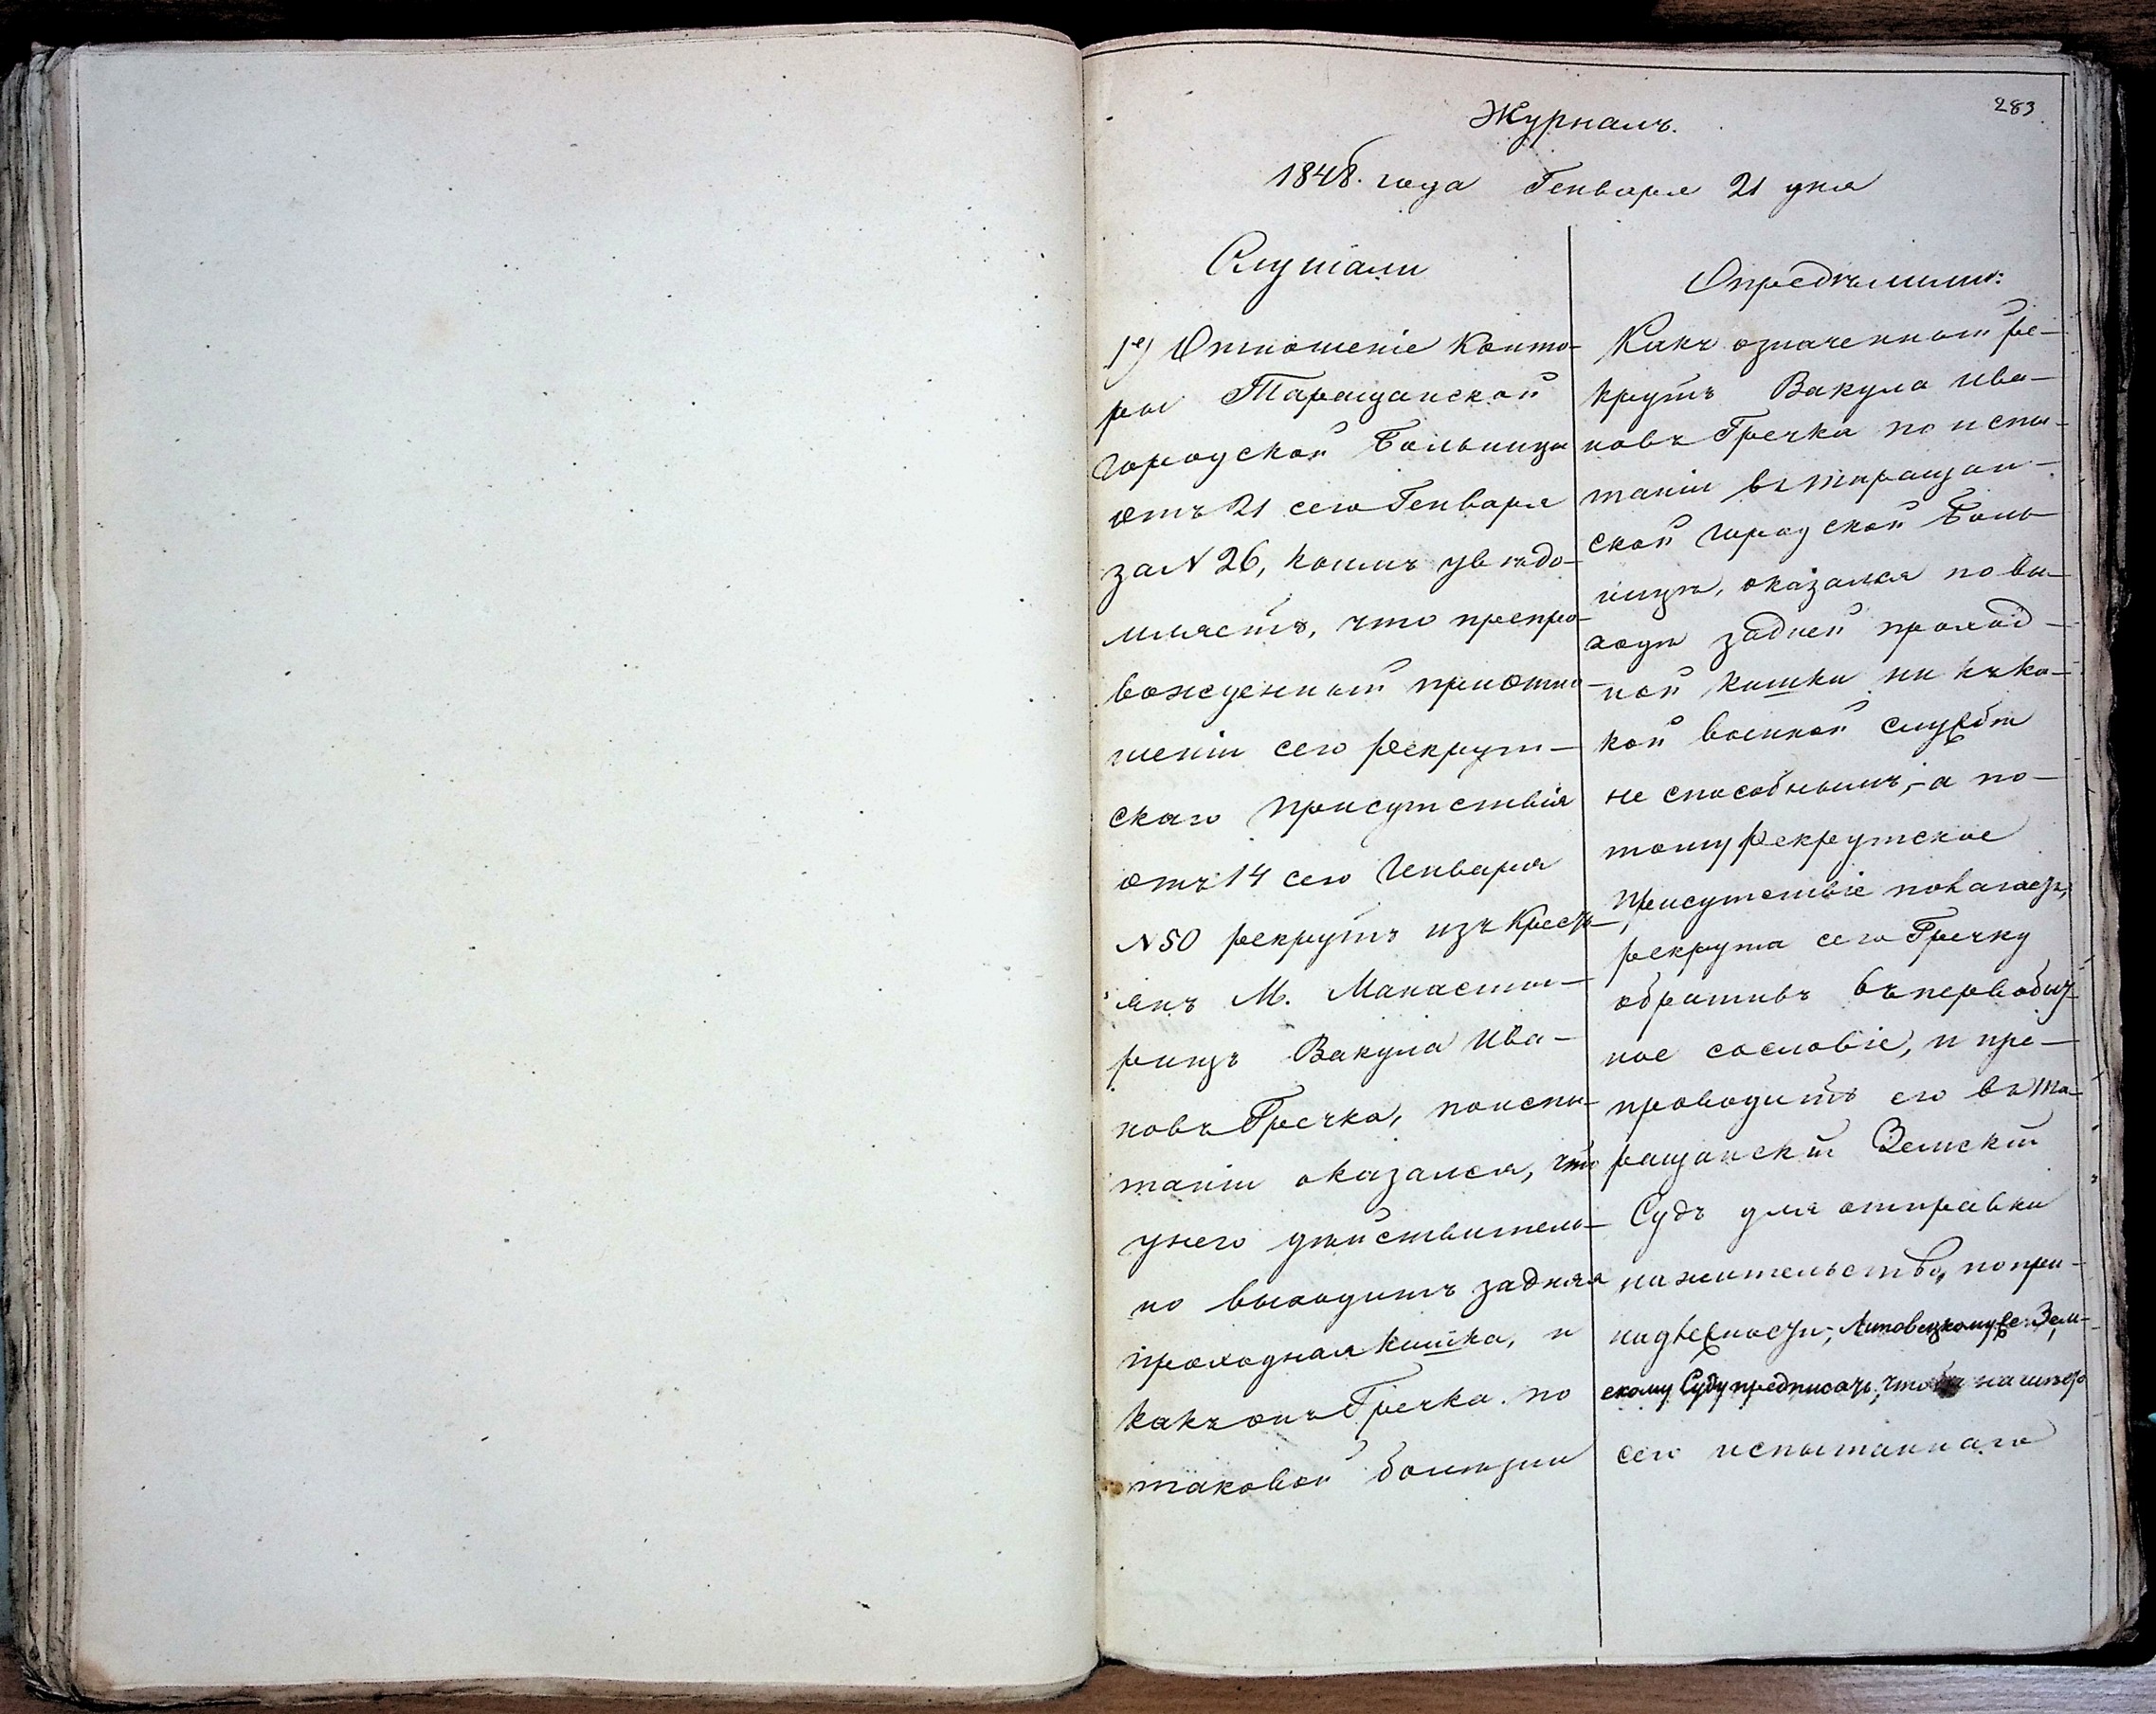 283
Журналъ.
1848. года Генваря 21 дня
Слушали
1е) Отношеніе Конто-
ры Таращанской
Городской Больницы
отъ 21 сего Генваря
за N 26, коимъ увѣдо-
мляетъ, что препро-
вожденный приотно-
шеніи сего рекрут-
скаго присутствія
отъ 14 сего Генваря
N 50 рекрутъ изъ Кресть-
янъ М. Манасты-
рищъ Вакула Ива-
новъ Гречка, поиспы-
таніи оказался, что
унего дѣйствитель-
но выходитъ задняя
проходная кишка, и
какъ онъ Гречка по
таковой болѣзни
Опредѣлили:
Какъ означенный ре-
крутъ Вакула Ива-
новъ Гречка по испы-
таніи въ таращан-
ской Городской Боль
ницѣ, оказался по вы-
ходу задней проход-
ной кишки ни къ ка-
кой военной службѣ
не способнымъ, - а по-
тому Рекрутское
Присутствіе полагаетъ,
рекрута сего Гречку
обративъ въ первобыт-
ное сословіе, и пре-
проводить его въ Та-
ращанскій Земскій
Судъ для отправки
на жительство, по при-
надлежности; Липовецкому же Зем-
скому Суду предписать, чтобы на мѣсто
сего испытаннаго